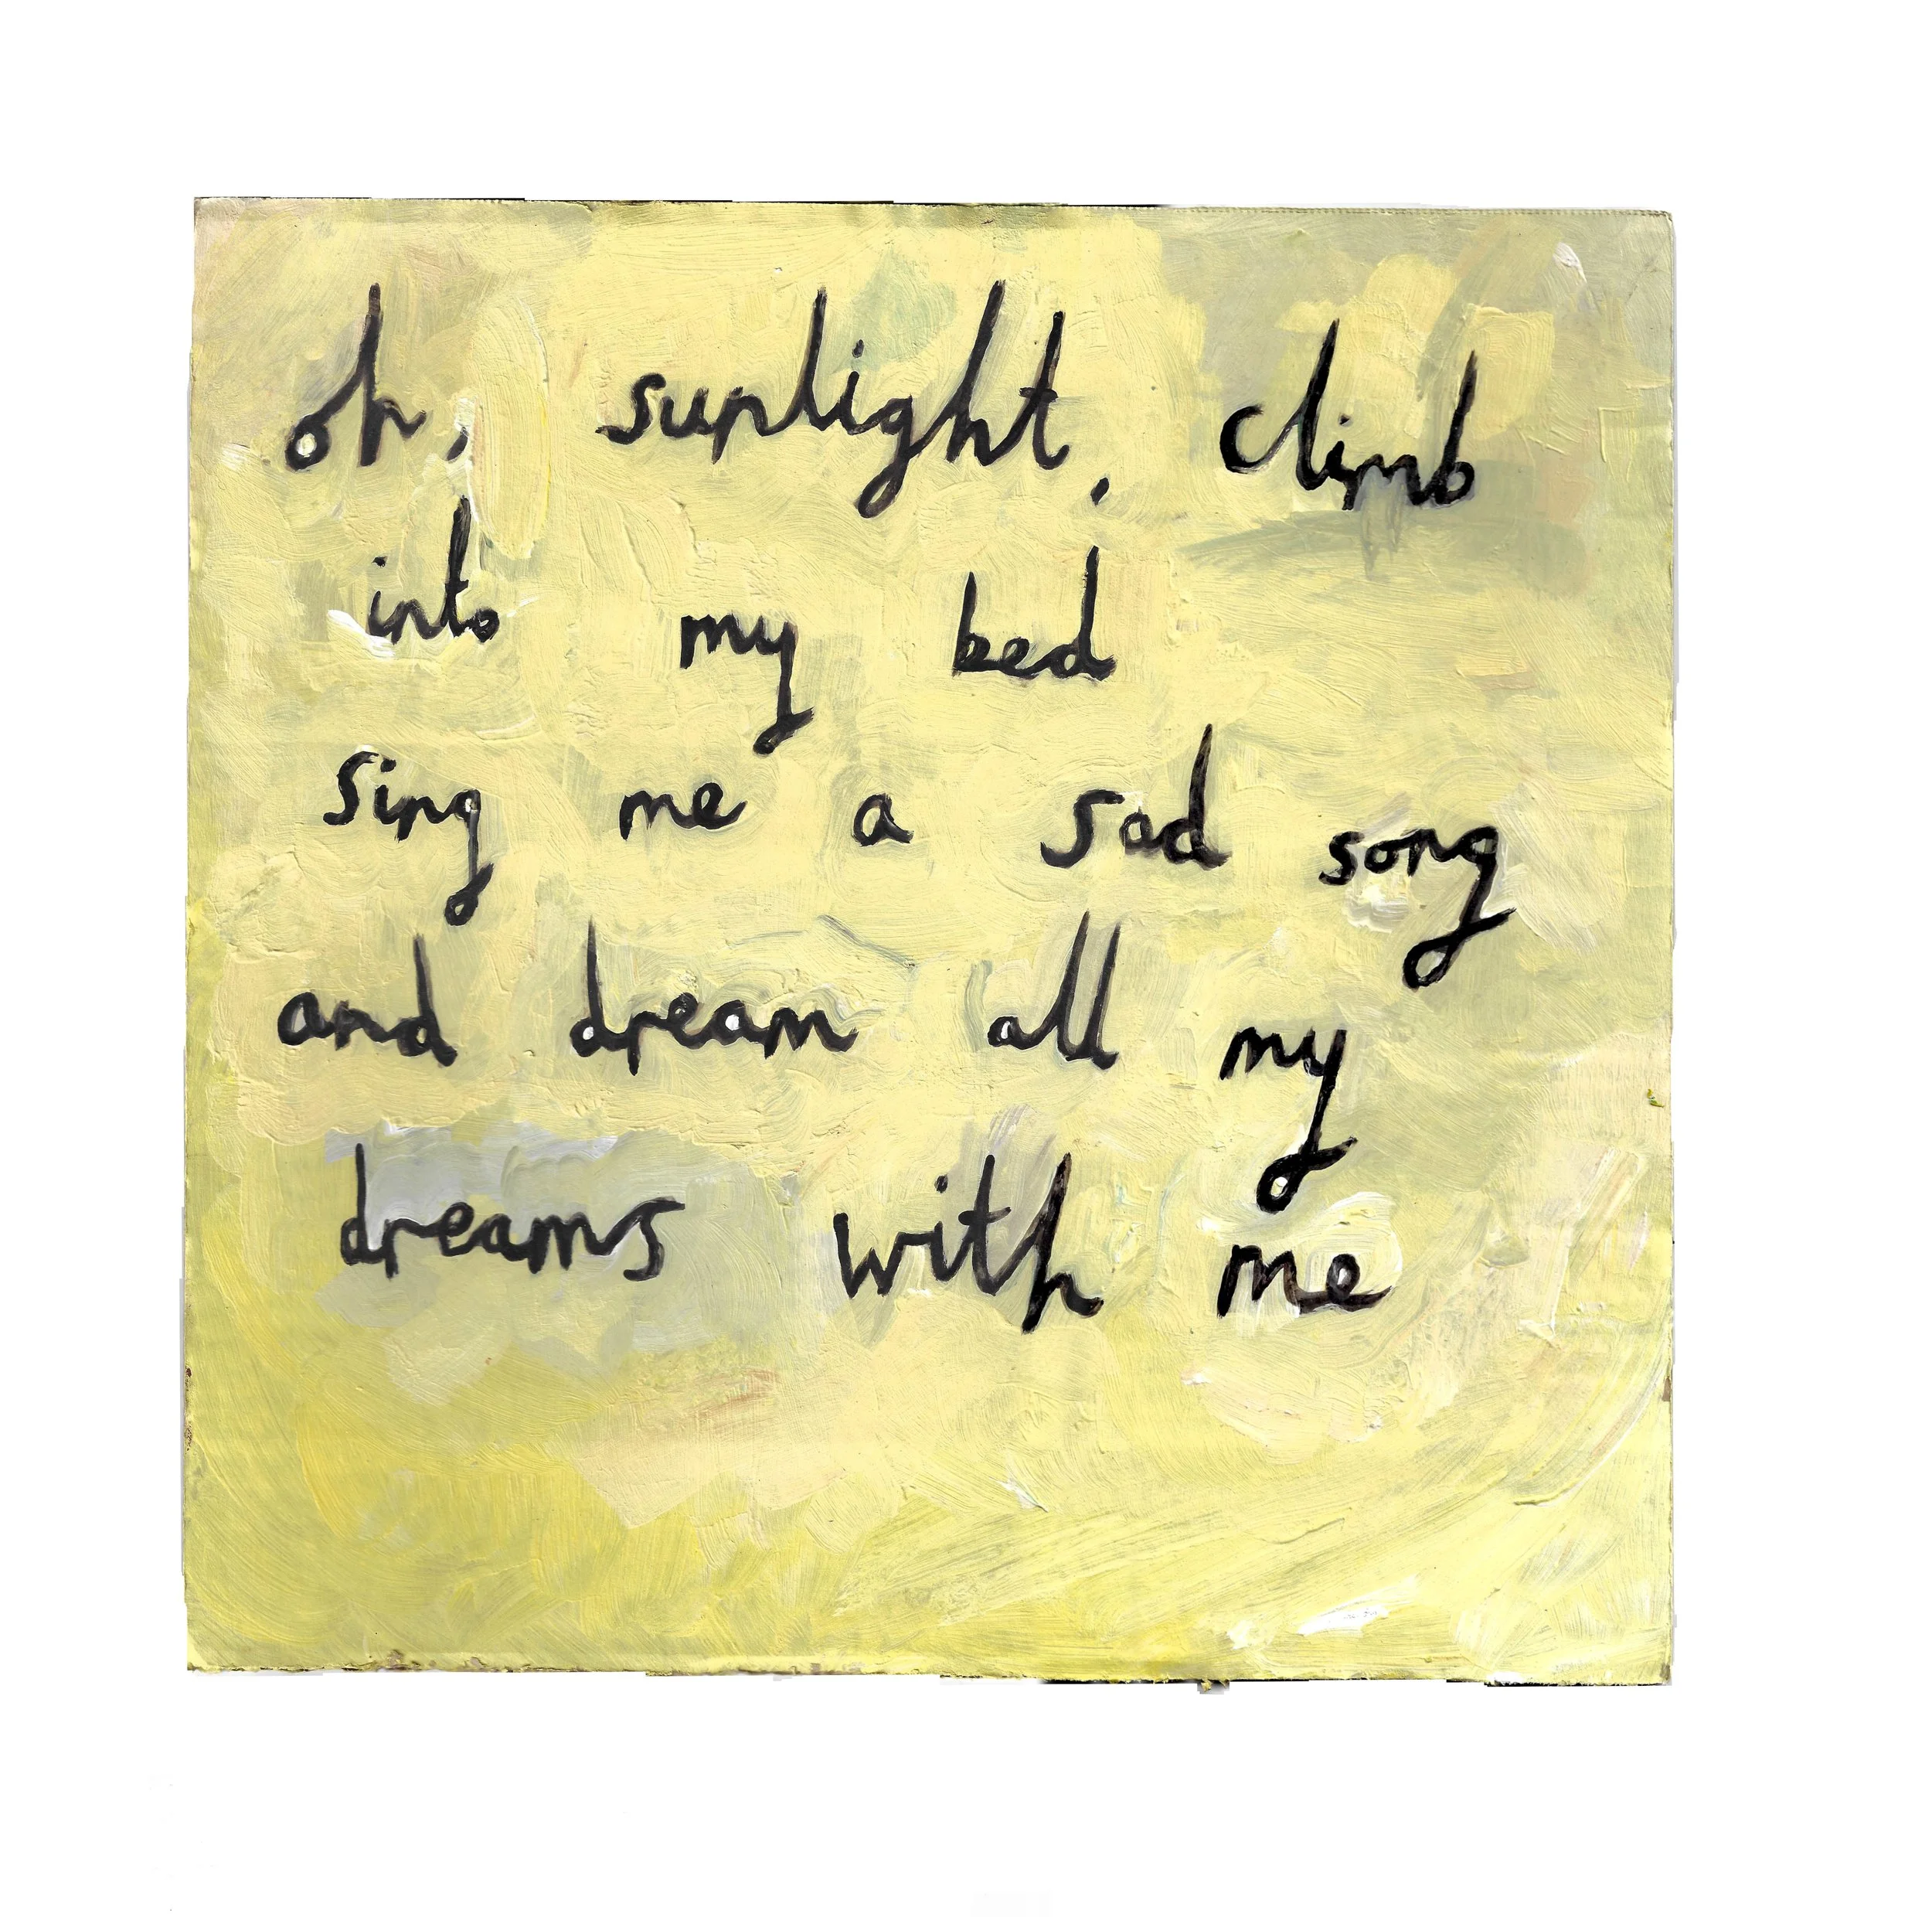 oh, sunlight, climb
into my bed
sing me a sad song
and dream all my
dreams with me